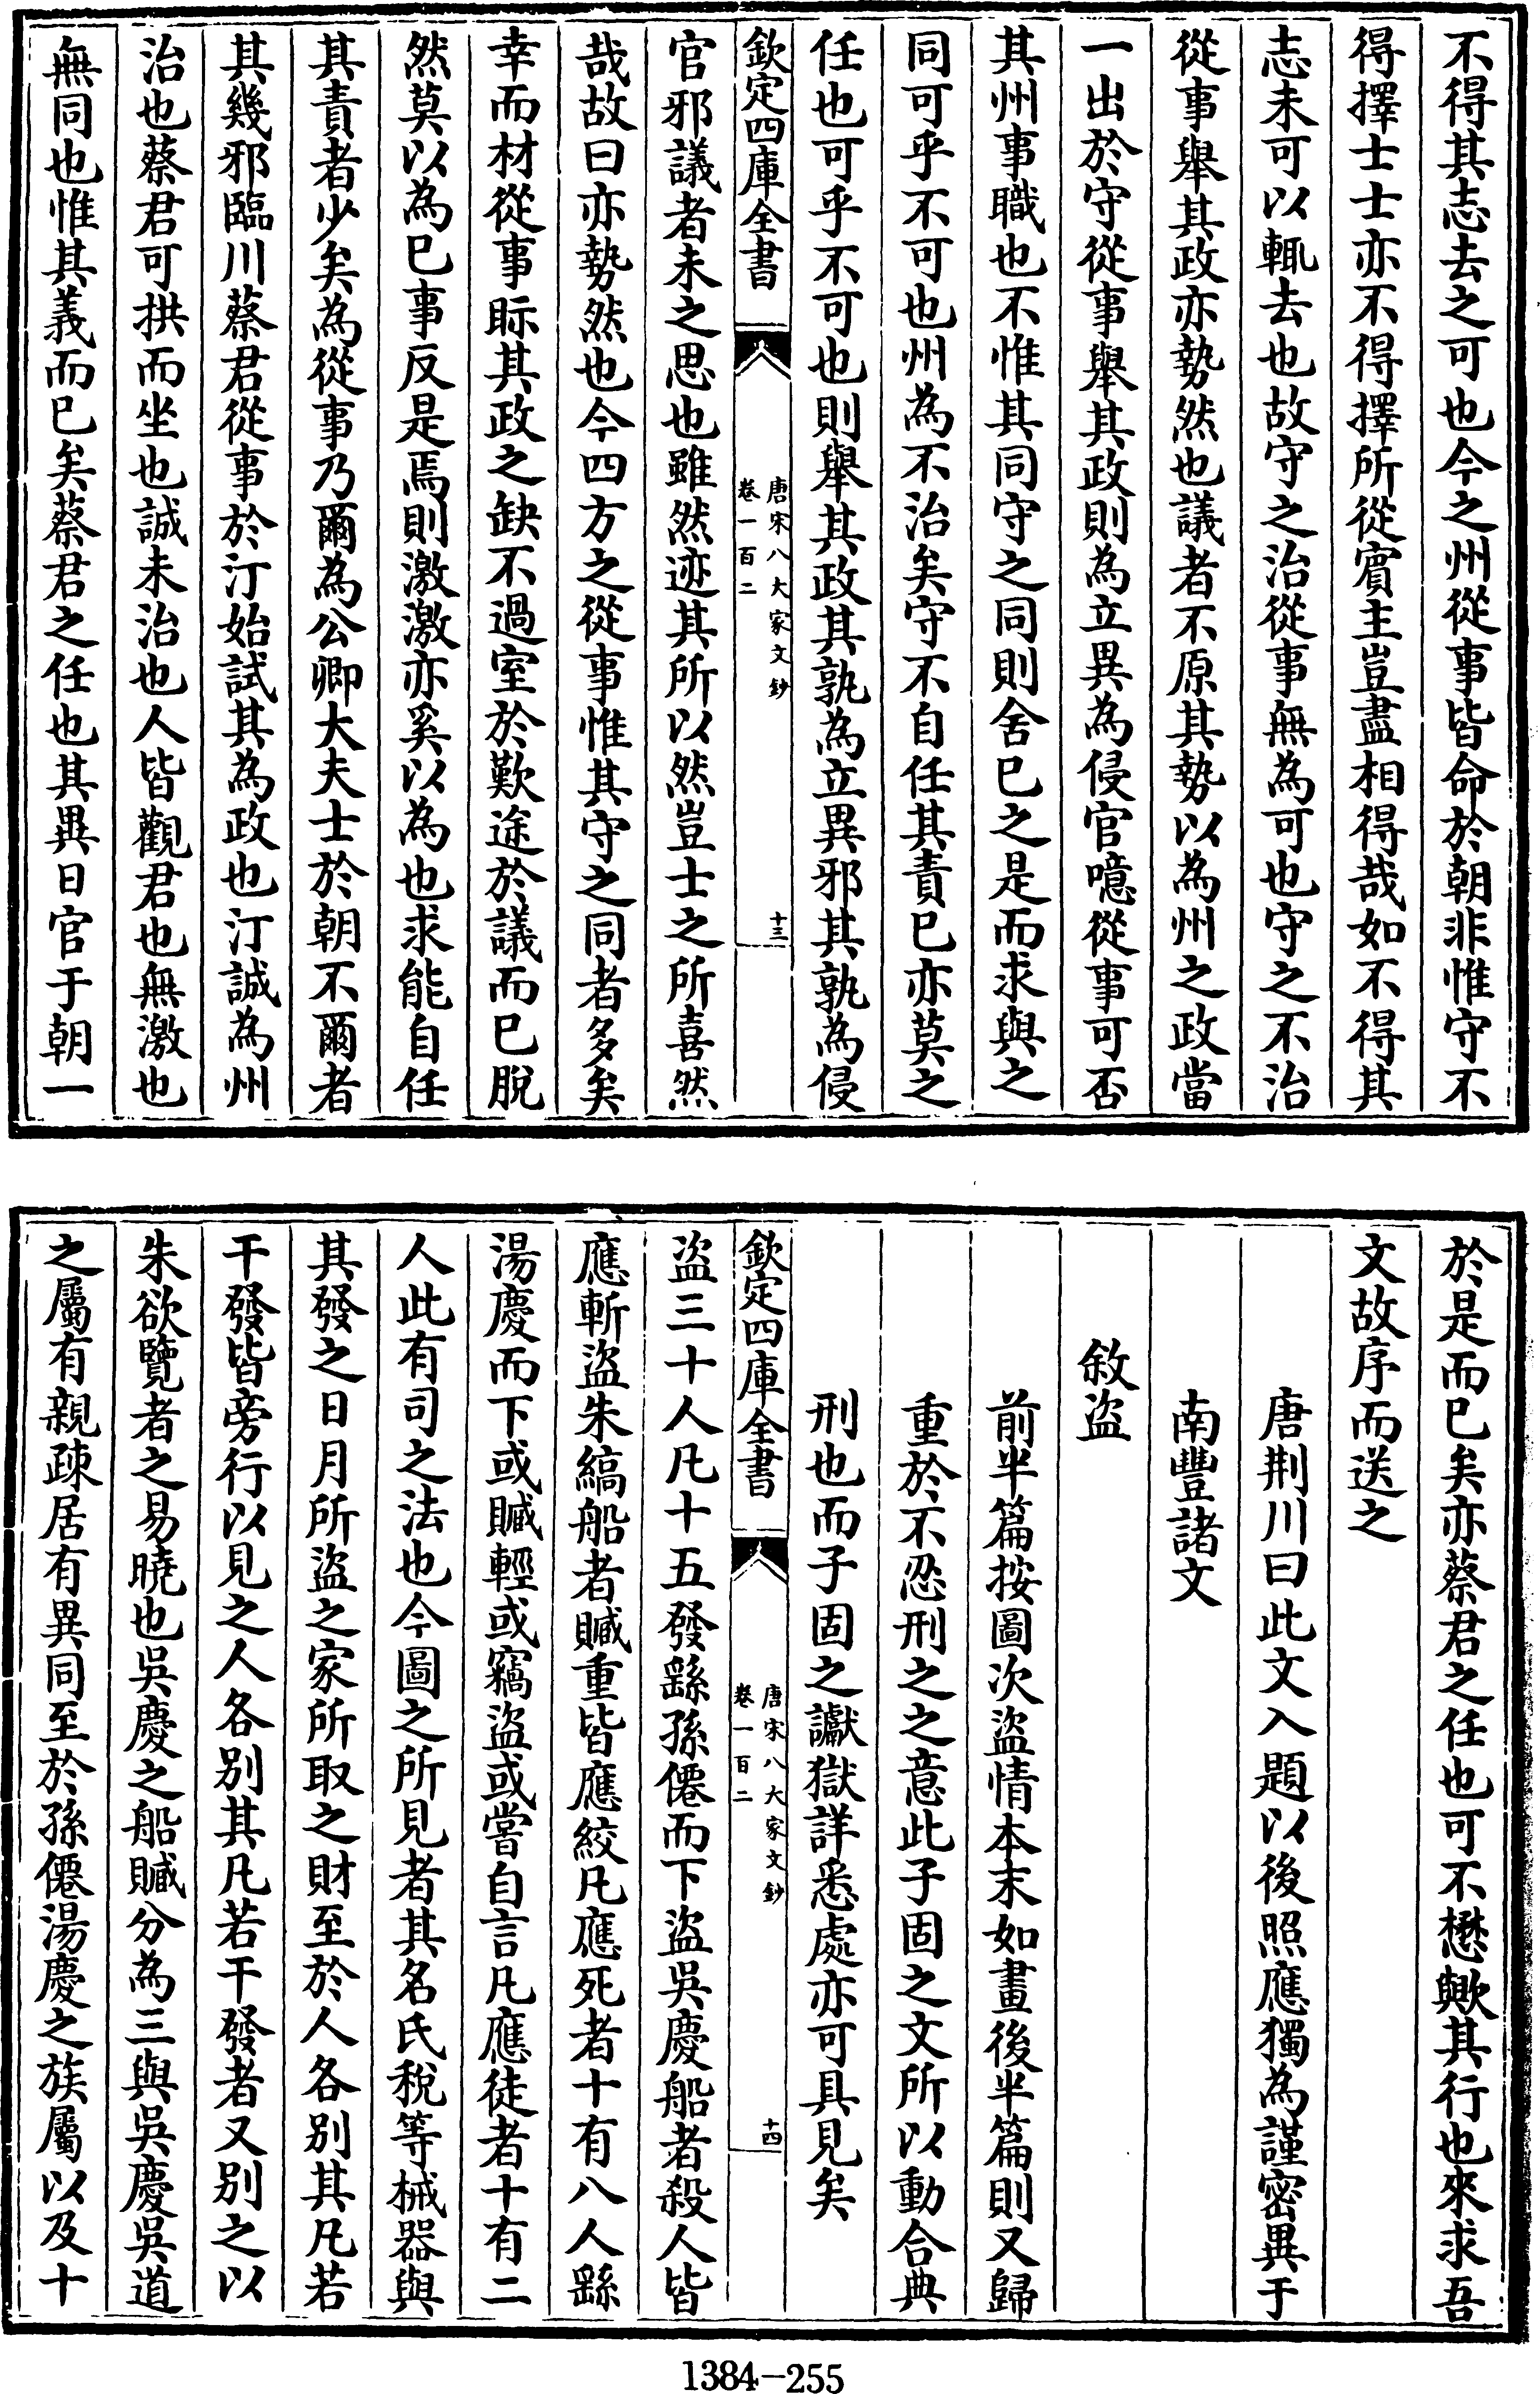 不得其志去之可也今之州從事皆命於朝非惟守不
得擇士士亦不得擇所從賔主豈盡相得哉如不得其
志未可以輒去也故守之治從事無為可也守之不治
從事舉其政亦勢然也議者不原其勢以為州之政當
一出於守從事舉其政則為立異為侵官噫從事可否
其州事職也不惟其同守之同則舍已之是而求與之
同可乎不可也州為不治矣守不自任其責已亦莫之
任也可乎不可也則舉其政其孰為立異邪其孰為侵
欽定四庫全書
唐宋八大家文鈔
卷一百二
十三
官邪議者未之思也雖然迹其所以然豈士之所喜然
哉故曰亦勢然也今四方之從事惟其守之同者多矣
幸而材從事眎其政之缺不過室於歎途於議而已脫
然莫以為已事反是焉則激激亦奚以為也求能自任
其責者少矣為從事乃爾為公卿大夫士於朝不爾者
其幾邪臨川蔡君從事於汀始試其為政也汀誠為州
治也蔡君可拱而坐也誠未治也人皆觀君也無激也
無同也惟其義而已矣蔡君之任也其異日官于朝一
於是而已矣亦蔡君之任也可不懋歟其行也來求吾
文故序而送之
唐荆川曰此文入題以後照應獨為謹密異于
南豐諸文
敘盜
前半篇按圖次盜情本末如畫後半篇則又歸
重於不忍刑之之意此子固之文所以動合典
刑也而子固之讞獄詳悉處亦可具見矣
欽定四庫全書
唐宋八大家文鈔
卷一百二
十四
盜三十人凡十五發繇孫僊而下盜吳慶船者殺人皆
應斬盜朱縞船者贓重皆應絞凡應死者十有八人繇
湯慶而下或贓輕或竊盜或嘗自言凡應徒者十有二
人此有司之法也今圖之所見者其名氏稅等械器與
其發之日月所盜之家所取之財至於人各別其凡若
干發皆旁行以見之人各別其凡若干發者又別之以
朱欲覽者之易曉也吳慶之船贓分為三與吳慶吳道
之屬有親疎居有異同至於孫僊湯慶之族屬以及十
1384-255